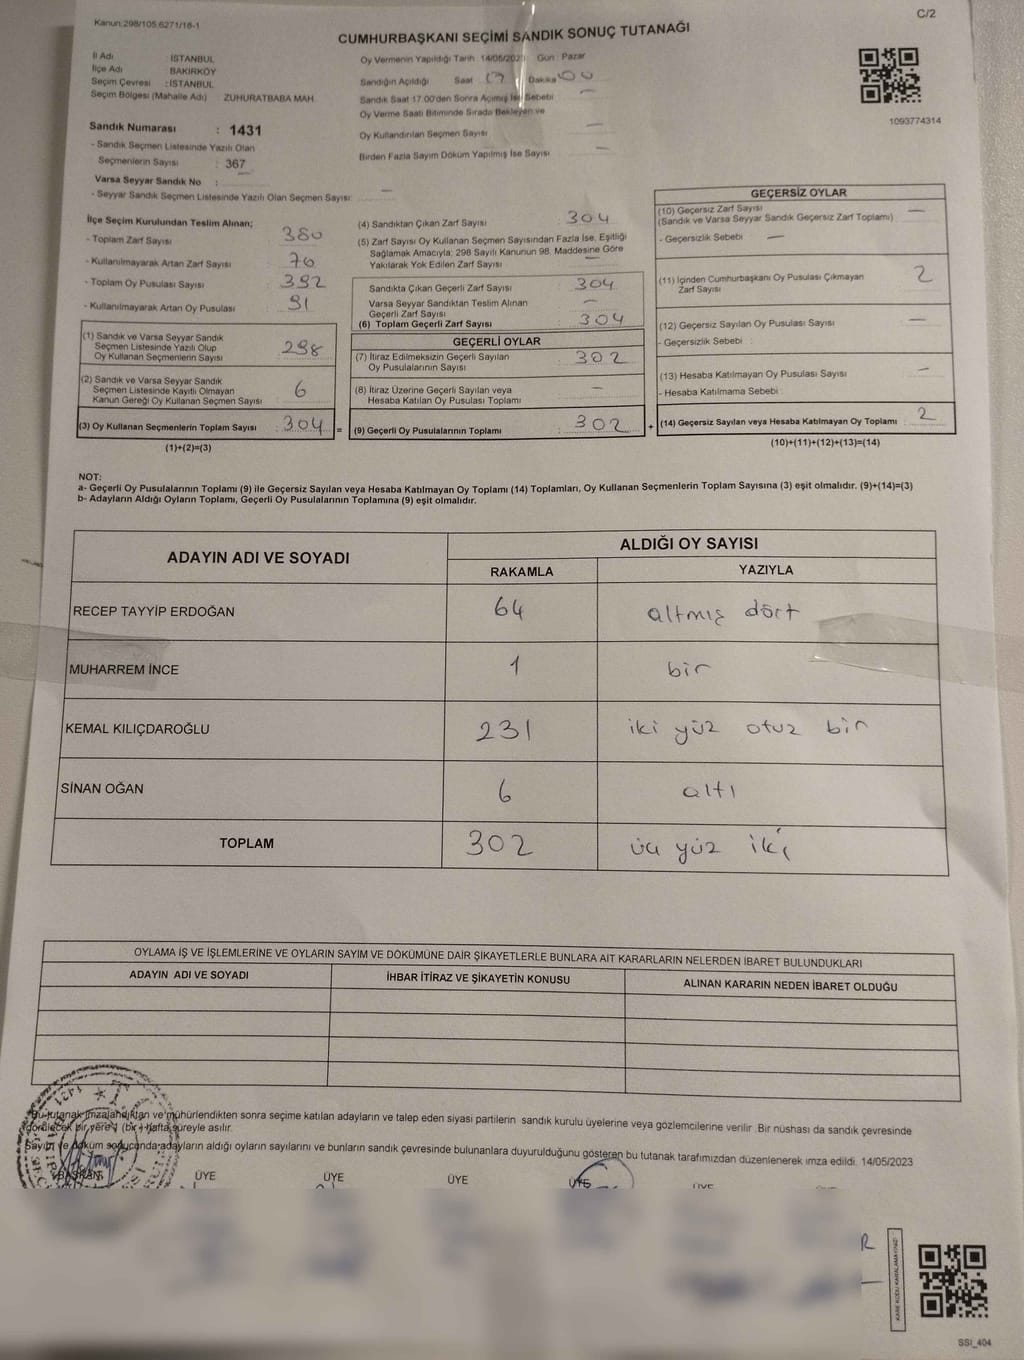 Kanun:298/105,6271/16-1
C/2
CUMHURBAŞKANI SEÇİMİ SANDIK SONUÇ TUTANAĞI
İl Adı İSTANBUL
İlçe Adı BAKIRKÖY
Seçim Çevresi : İSTANBUL
Seçim Bölgesi (Mahalle Adı) ZUHURATBABA MAH.
Sandık Numarası : 1431
- Sandık Seçmen Listesinde Yazılı Olan
Seçmenlerin Sayısı : 367
Varsa Seyyar Sandık No :
- Seyyar Sandık Seçmen Listesinde Yazılı Olan Seçmen Sayısı: —
Oy Vermenin Yapıldığı Tarih :14/05/2023 Gün : Pazar
Sandığın Açıldığı Saat 17 Dakika 00
Sandık Saat 17.00'den Sonra Açılmış İse Sebebi —
Oy Verme Saati Bitiminde Sırada Bekleyen ve
Oy Kullandırılan Seçmen Sayısı —
Birden Fazla Sayım Döküm Yapılmış İse Sayısı —
1093774314
İlçe Seçim Kurulundan Teslim Alınan;
- Toplam Zarf Sayısı 380
- Kullanılmayarak Artan Zarf Sayısı 76
- Toplam Oy Pusulası Sayısı 392
- Kullanılmayarak Artan Oy Pusulası 91
(1) Sandık ve Varsa Seyyar Sandık
Seçmen Listesinde Yazılı Olup
Oy Kullanan Seçmenlerin Sayısı 298
(2) Sandık ve Varsa Seyyar Sandık
Seçmen Listesinde Kayıtlı Olmayan
Kanun Gereği Oy Kullanan Seçmen Sayısı 6
(3) Oy Kullanan Seçmenlerin Toplam Sayısı 304 =
(1)+(2)=(3)
(4) Sandıktan Çıkan Zarf Sayısı 304
(5) Zarf Sayısı Oy Kullanan Seçmen Sayısından Fazla İse, Eşitliği
Sağlamak Amacıyla; 298 Sayılı Kanunun 98. Maddesine Göre
Yakılarak Yok Edilen Zarf Sayısı —
Sandıkta Çıkan Geçerli Zarf Sayısı 304
Varsa Seyyar Sandıktan Teslim Alınan
Geçerli Zarf Sayısı —
(6) Toplam Geçerli Zarf Sayısı 304
GEÇERLİ OYLAR
(7) İtiraz Edilmeksizin Geçerli Sayılan
Oy Pusulalarının Sayısı 302
(8) İtiraz Üzerine Geçerli Sayılan veya
Hesaba Katılan Oy Pusulası Toplamı —
(9) Geçerli Oy Pusulalarının Toplamı 302 +
GEÇERSİZ OYLAR
(10) Geçersiz Zarf Sayısı —
(Sandık ve Varsa Seyyar Sandık Geçersiz Zarf Toplamı)
- Geçersizlik Sebebi —
(11) İçinden Cumhurbaşkanı Oy Pusulası Çıkmayan 2
Zarf Sayısı
(12) Geçersiz Sayılan Oy Pusulası Sayısı —
- Geçersizlik Sebebi :
(13) Hesaba Katılmayan Oy Pusulası Sayısı —
- Hesaba Katılmama Sebebi :
(14) Geçersiz Sayılan veya Hesaba Katılmayan Oy Toplamı 2
(10)+(11)+(12)+(13)=(14)
NOT:
a- Geçerli Oy Pusulalarının Toplamı (9) ile Geçersiz Sayılan veya Hesaba Katılmayan Oy Toplamı (14) Toplamları, Oy Kullanan Seçmenlerin Toplam Sayısına (3) eşit olmalıdır. (9)+(14)=(3)
b- Adayların Aldığı Oyların Toplamı, Geçerli Oy Pusulalarının Toplamına (9) eşit olmalıdır.
ADAYIN ADI VE SOYADI
ALDIĞI OY SAYISI
RAKAMLA YAZIYLA
RECEP TAYYİP ERDOĞAN 64 altmış dört
MUHARREM İNCE 1 bir
KEMAL KILIÇDAROĞLU 231 iki yüz otuz bir
SİNAN OĞAN 6 altı
TOPLAM 302 üç yüz iki
OYLAMA İŞ VE İŞLEMLERİNE VE OYLARIN SAYIM VE DÖKÜMÜNE DAİR ŞİKAYETLERLE BUNLARA AİT KARARLARIN NELERDEN İBARET BULUNDUKLARI
ADAYIN ADI VE SOYADI İHBAR İTİRAZ VE ŞİKAYETİN KONUSU ALINAN KARARIN NEDEN İBARET OLDUĞU
Bu tutanak imzalandıktan ve mühürlendikten sonra seçime katılan adayların ve talep eden siyasi partilerin sandık kurulu üyelerine veya gözlemcilerine verilir. Bir nüshası da sandık çevresinde
görülecek bir yere 1 (bir) hafta süreyle asılır.
Sayım ve döküm sonucunda adayların aldığı oyların sayılarını ve bunların sandık çevresinde bulunanlara duyurulduğunu gösteren bu tutanak tarafımızdan düzenlenerek imza edildi. 14/05/2023
BAŞKAN ÜYE ÜYE ÜYE ÜYE ÜYE
SSI_404